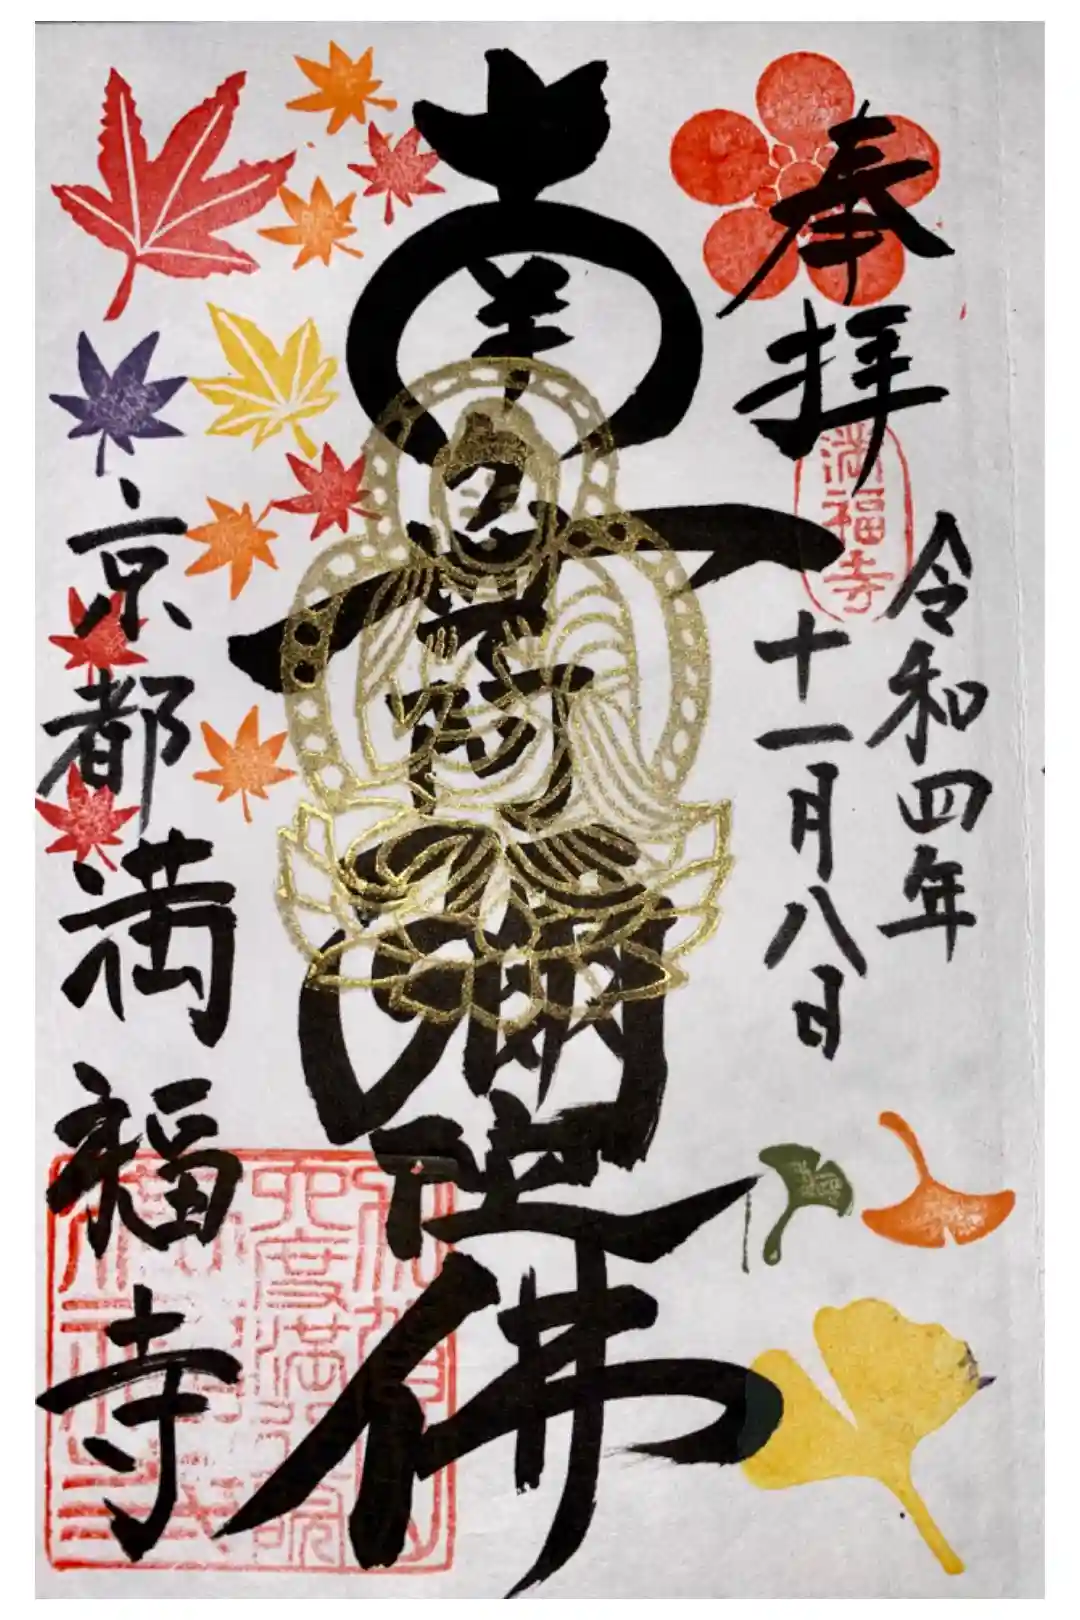 奉拝
満福寺
令和四年
十一月八日
南無阿彌陀佛
京都満福寺